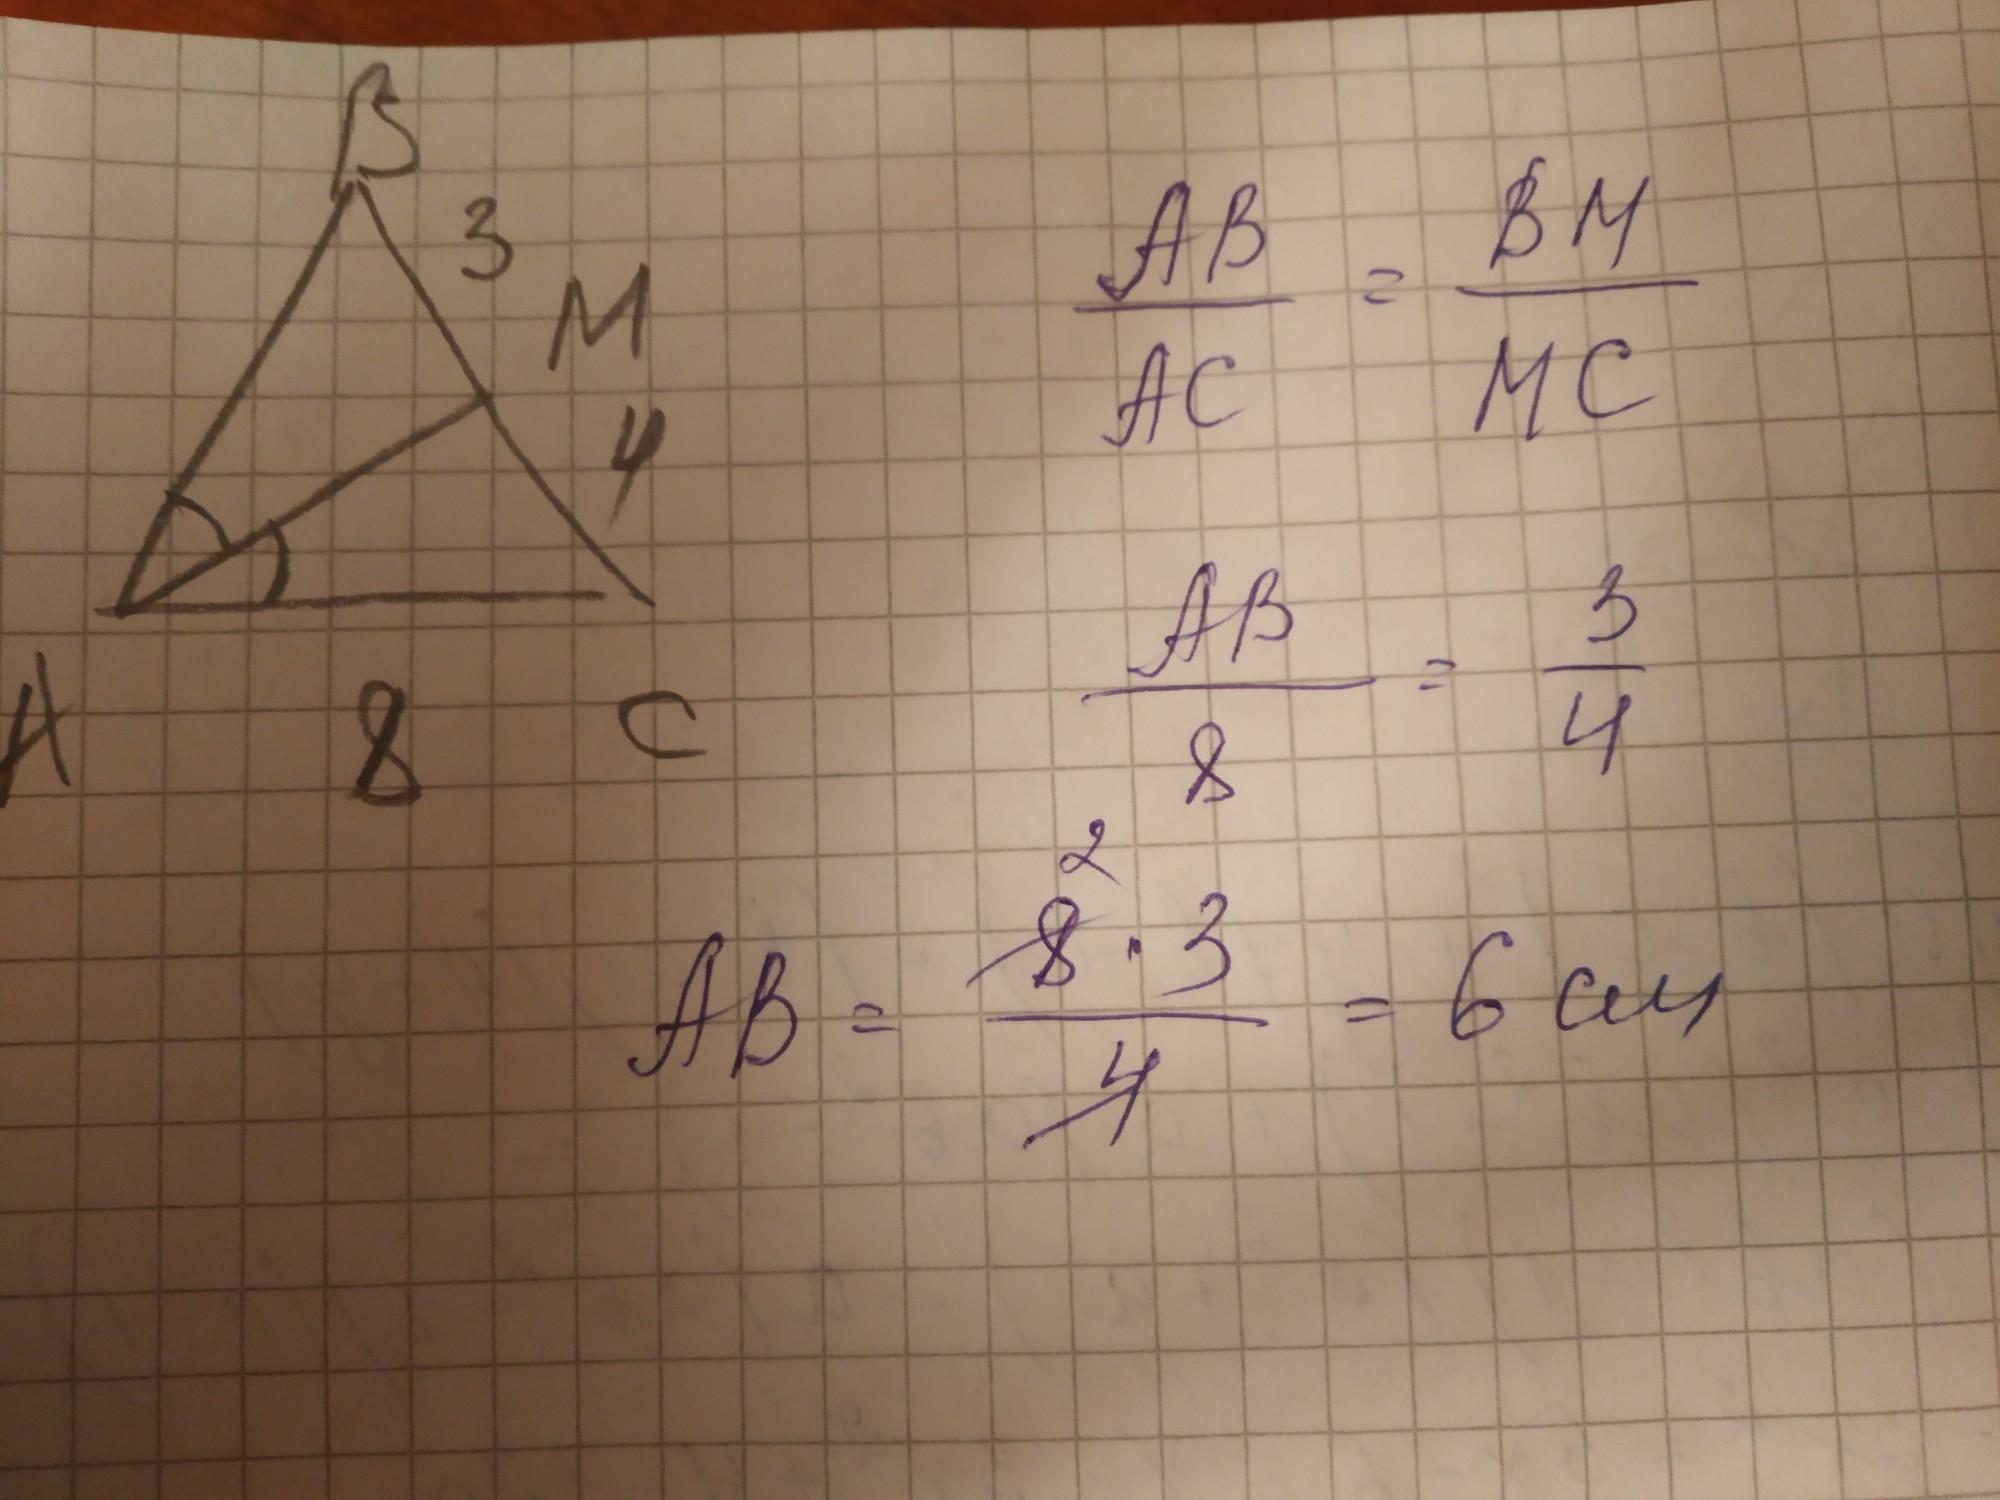 B
3
M
4
A 8 C
AB/AC = BM/MC
AB/8 = 3/4
2
AB = 8·3/4 = 6 см